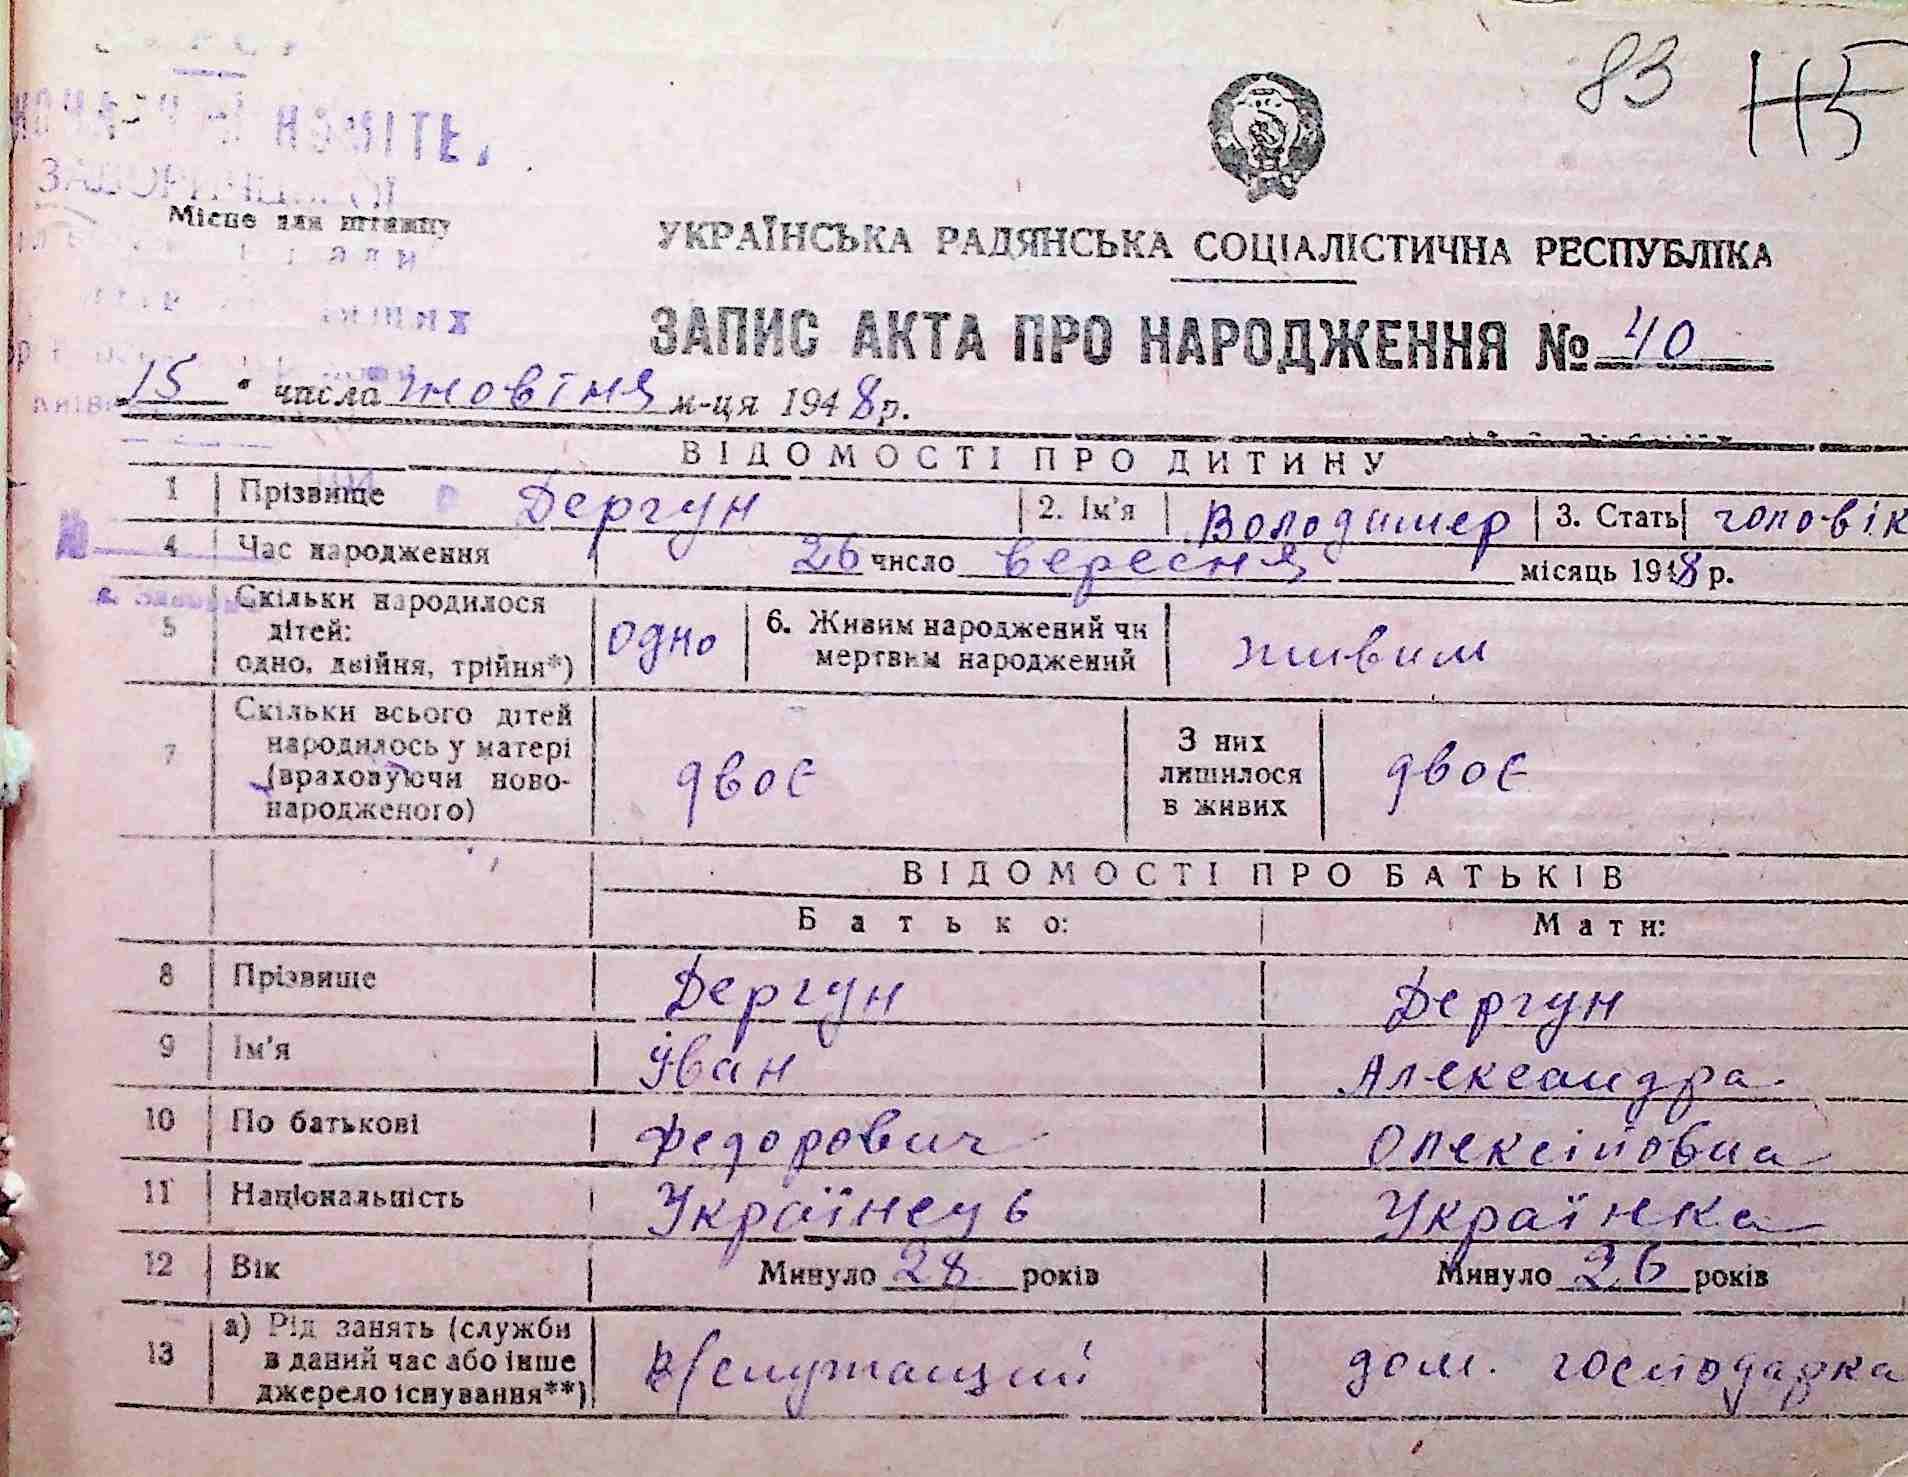 83 115
КОМІТЕ
Місце для штампу
УКРАЇНСЬКА РАДЯНСЬКА СОЦІАЛІСТИЧНА РЕСПУБЛІКА
ЗАПИС АКТА ПРО НАРОДЖЕННЯ № 40
15 числа жовтня м-ця 1948 р.
ВІДОМОСТІ ПРО ДИТИНУ
1 Прізвище Дергун 2. Ім'я Володимер 3. Стать чоловік
4 Час народження 26 число вересня місяць 1948 р.
5 Скільки народилося
дітей:
одно, двійня, трійня*)
одно
6. Живим народжений чи
мертвим народжений
живим
7 Скільки всього дітей
народилось у матері
(враховуючи ново-
народженого)
двоє
З них
лишилося
в живих
двоє
ВІДОМОСТІ ПРО БАТЬКІВ
Батько: Мати:
8 Прізвище Дергун Дергун
9 Ім'я Іван Александра
10 По батькові Федорович Олексіповна
11 Національність Українець Українка
12 Вік Минуло 28 років Минуло 26 років
13 а) Рід занять (служби
в даний час або інше
джерело існування**)
в/служащий дом. господарка